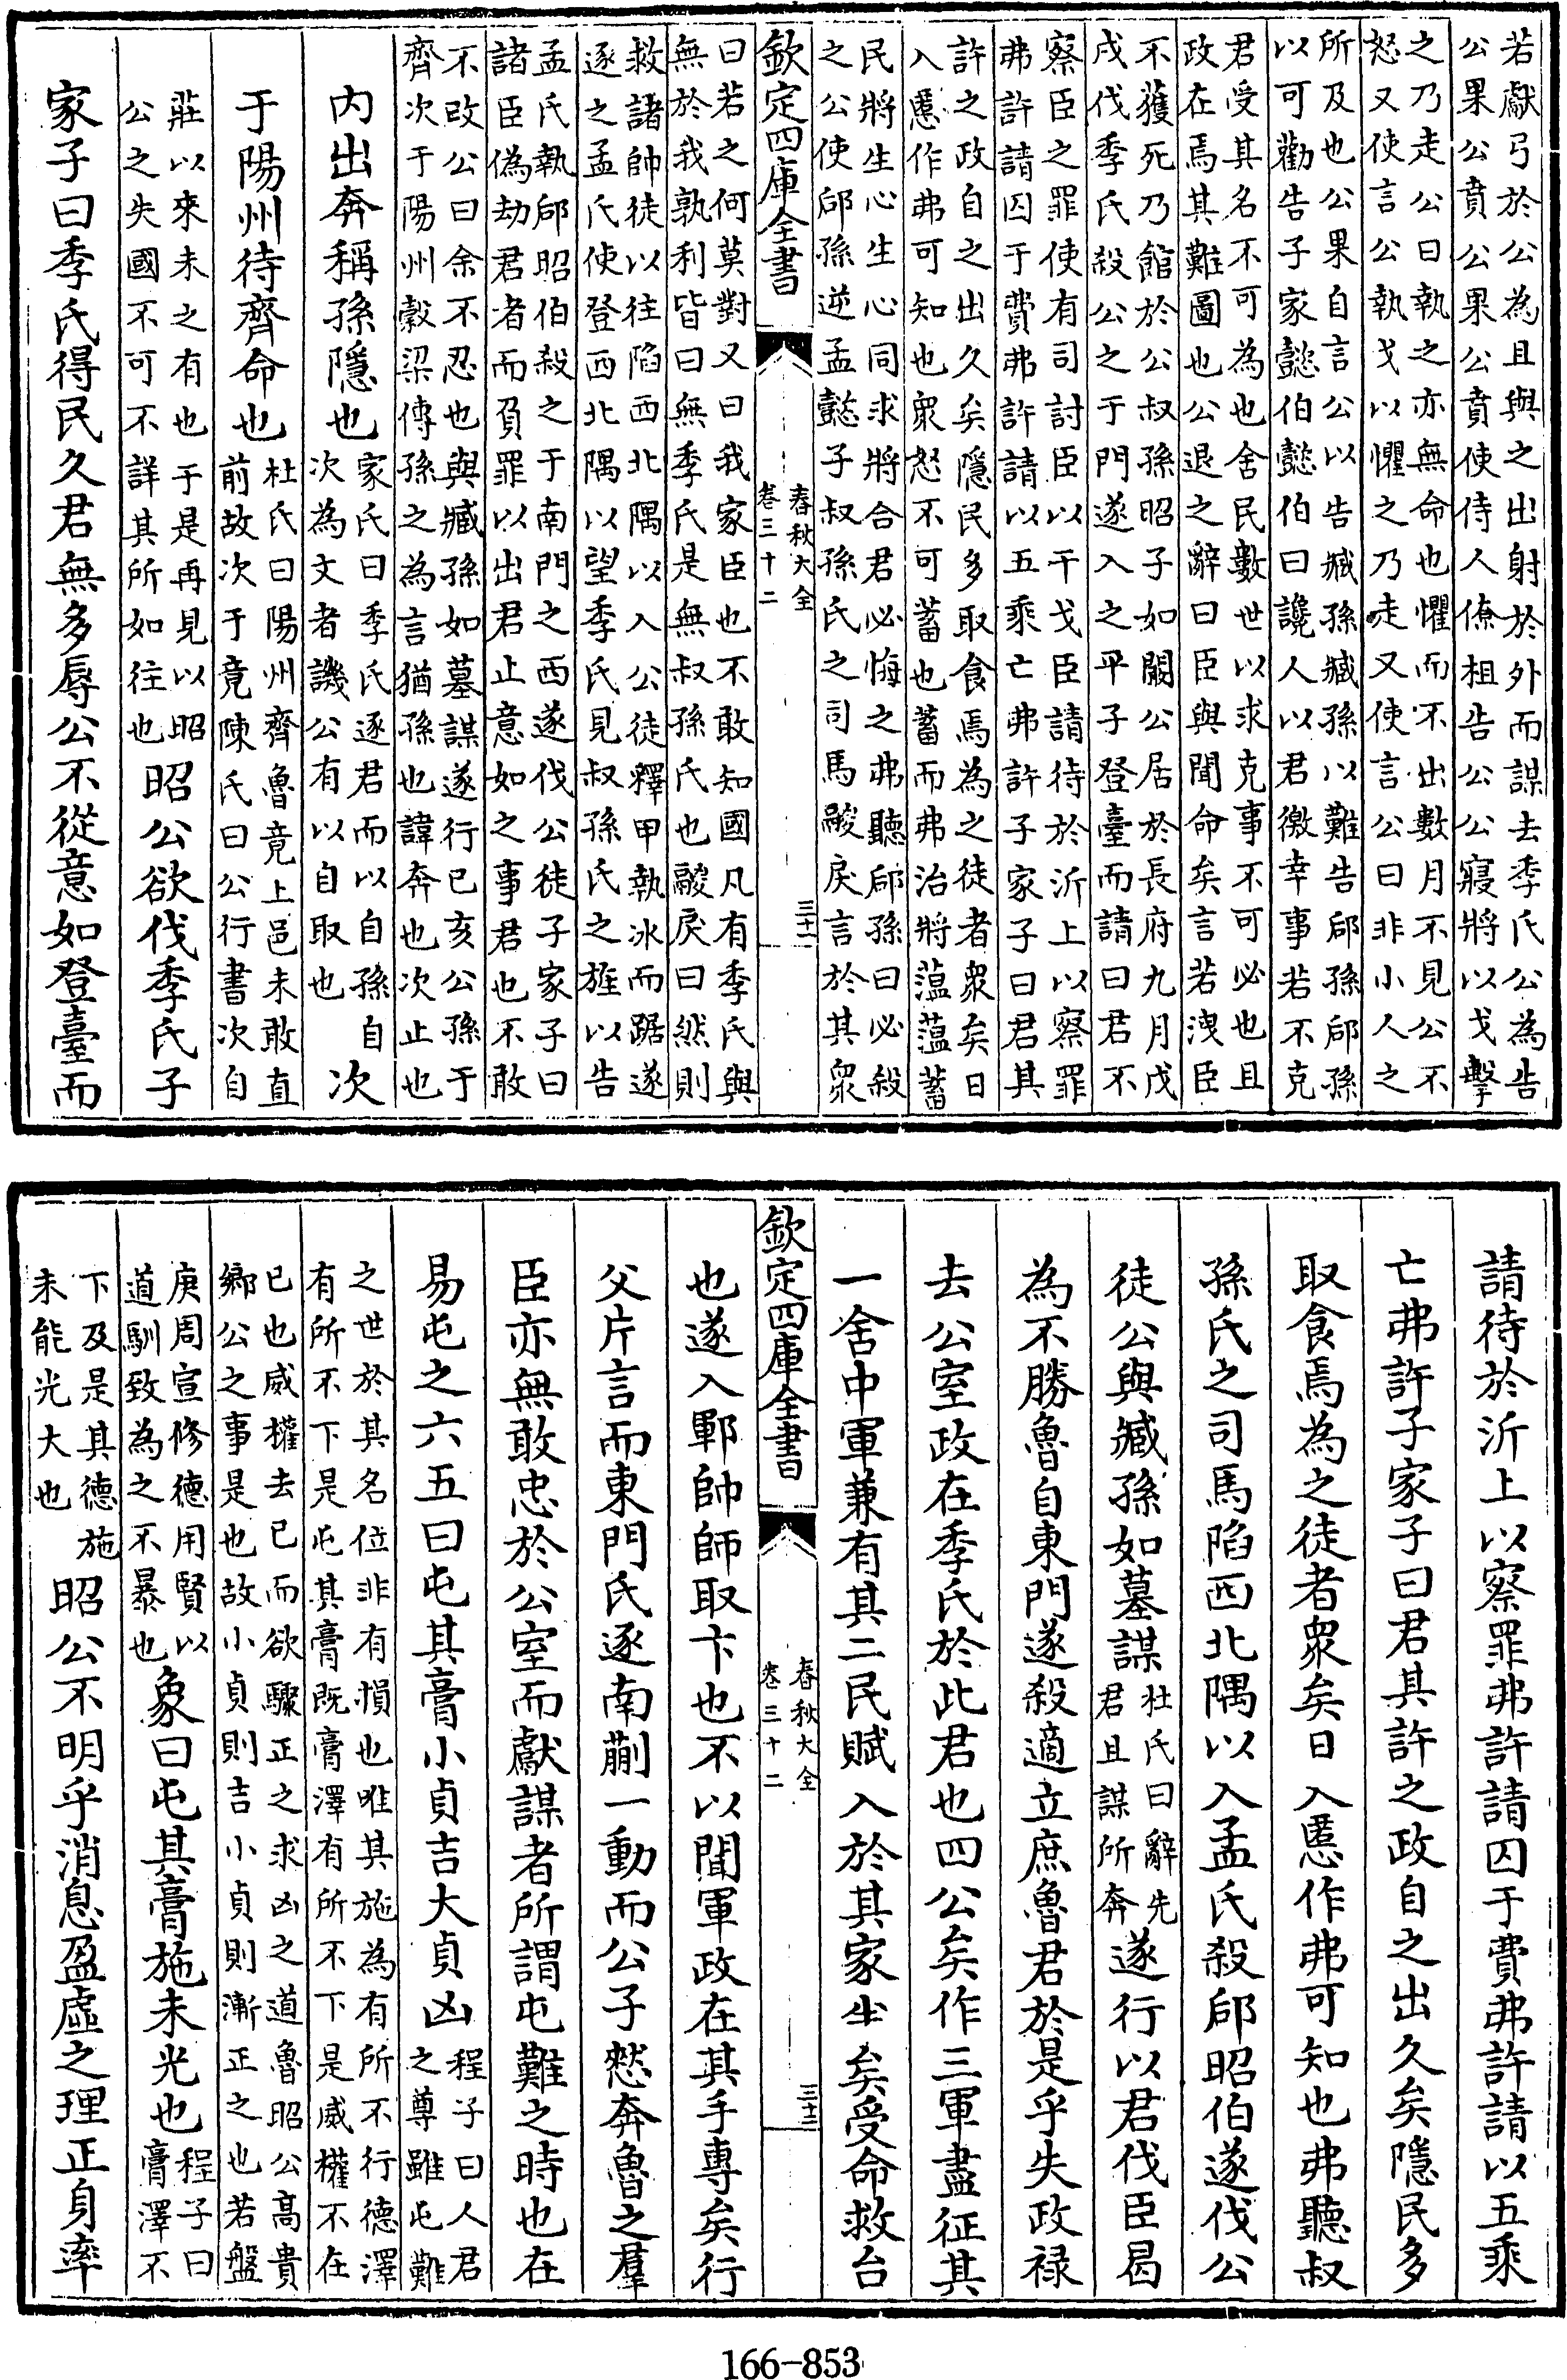 若獻弓於公為且與之出射於外而謀去季氏公為告
公果公賁公果公賁使侍人僚柤告公公寢將以戈擊
之乃走公曰執之亦無命也懼而不出數月不見公不
怒又使言公執戈以懼之乃走又使言公曰非小人之
所及也公果自言公以告臧孫臧孫以難告郈孫郈孫
以可勸告子家懿伯懿伯曰讒人以君徼幸事若不克
君受其名不可為也舍民數世以求克事不可必也且
政在焉其難圖也公退之辭曰臣與聞命矣言若洩臣
不獲死乃館於公叔孫昭子如闞公居於長府九月戊
戌伐季氏殺公之于門遂入之平子登臺而請曰君不
察臣之罪使有司討臣以干戈臣請待於沂上以察罪
弗許請囚于費弗許請以五乘亡弗許子家子曰君其
許之政自之出久矣隱民多取食焉為之徒者衆矣日
入慝作弗可知也衆怒不可蓄也蓄而弗治將薀薀蓄
民將生心生心同求將合君必悔之弗聽郈孫曰必殺
之公使郈孫逆孟懿子叔孫氏之司馬鬷戾言於其衆
欽定四庫全書
春秋大全
卷三十二
三十一
曰若之何莫對又曰我家臣也不敢知國凡有季氏與
無於我孰利皆曰無季氏是無叔孫氏也鬷戾曰然則
救諸帥徒以往陷西北隅以入公徒釋甲執冰而踞遂
逐之孟氏使登西北隅以望季氏見叔孫氏之旌以告
孟氏執郈昭伯殺之于南門之西遂伐公徒子家子曰
諸臣偽劫君者而負罪以出君止意如之事君也不敢
不改公曰余不忍也與臧孫如墓謀遂行已亥公孫于
齊次于陽州穀梁傳孫之為言猶孫也諱奔也次止也
內出奔稱孫隱也
家氏曰季氏逐君而以自孫自
次為文者譏公有以自取也
次
于陽州待齊命也
杜氏曰陽州齊魯竟上邑未敢直
前故次于竟陳氏曰公行書次自
莊以來未之有也于是再見以昭
公之失國不可不詳其所如往也
昭公欲伐季氏子
家子曰季氏得民久君無多辱公不從意如登臺而
請待於沂上以察罪弗許請囚于費弗許請以五乘
亡弗許子家子曰君其許之政自之出久矣隱民多
取食焉為之徒者衆矣日入慝作弗可知也弗聽叔
孫氏之司馬陷西北隅以入孟氏殺郈昭伯遂伐公
徒公與臧孫如墓謀
杜氏曰辭先
君且謀所奔
遂行以君伐臣曷
為不勝魯自東門遂殺適立庶魯君於是乎失政祿
去公室政在季氏於此君也四公矣作三軍盡征其
一舍中軍兼有其二民賦入於其家半矣受命救台
欽定四庫全書
春秋大全
卷三十二
三十二
也遂入鄆帥師取卞也不以聞軍政在其手專矣行
父片言而東門氏逐南蒯一動而公子憖奔魯之羣
臣亦無敢忠於公室而獻謀者所謂屯難之時也在
易屯之六五曰屯其膏小貞吉大貞凶
程子曰人君
之尊雖屯難
之世於其名位非有損也唯其施為有所不行德澤
有所不下是屯其膏既膏澤有所不下是威權不在
已也威權去已而欲驟正之求凶之道魯昭公高貴
鄉公之事是也故小貞則吉小貞則漸正之也若盤
庚周宣修德用賢以
道馴致為之不暴也
象曰屯其膏施未光也
程子曰
膏澤不
下及是其德施
未能光大也
昭公不明乎消息盈虛之理正身率
166-853